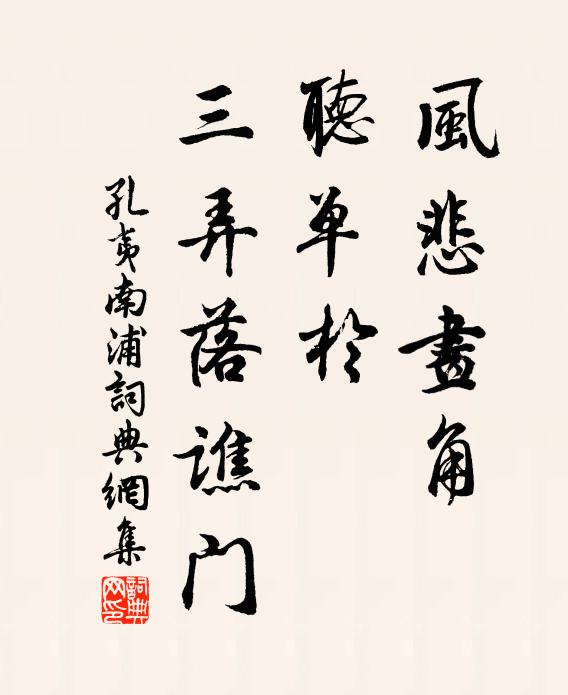 風悲畫角
聽单於
三弄落譙門
孔夷南浦詞典網集
詞典網印